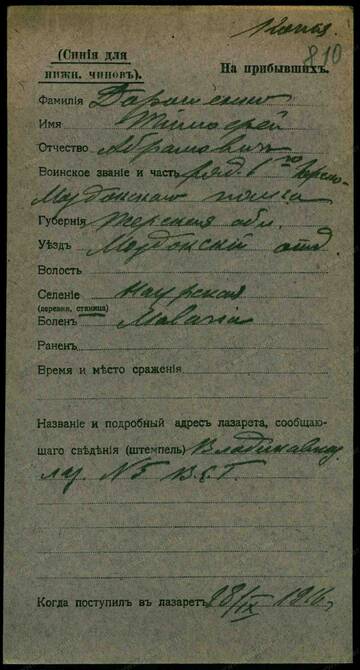 Копія
810
(Синія для
нижн. чиновъ).
На прибывшихъ.
Фамилія Дорошенко
Имя Тимофей
Отчество Абрамовичъ
Воинское званіе и часть ряд. 6го
Моздокскаго полка
Губернія Терская обл.
Уѣздъ Моздокскій отд
Волость
Селеніе Наурская
(деревня, станица)
Боленъ Malaria
Раненъ
Время и мѣсто сраженія
Названіе и подробный адресъ лазарета, сообщаю-
щаго свѣдѣнія (штемпель) Владикавказ.
лаз. N5 В.Г.Г.
Когда поступилъ въ лазаретъ 28/IX 1916 г.